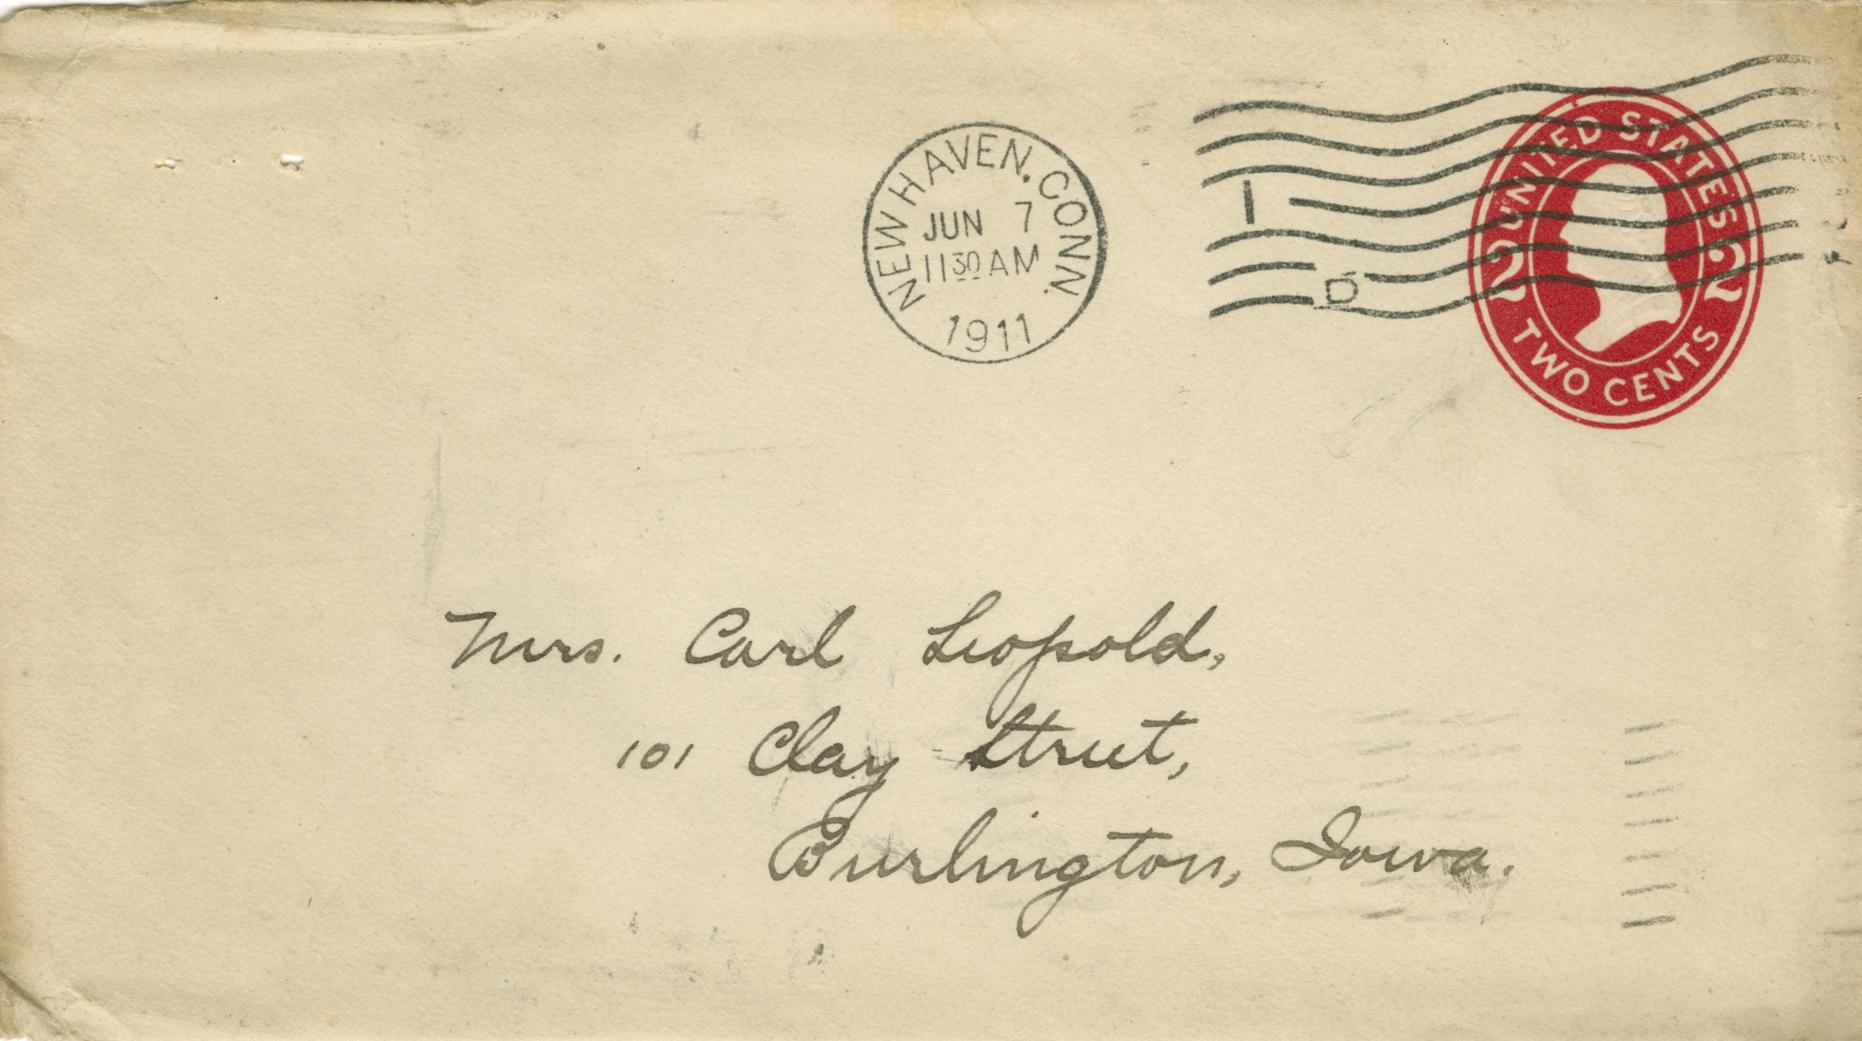 NEW HAVEN, CONN.
JUN 7
11 30 AM
1911
1
D
UNITED STATES
2 2
TWO CENTS
Mrs. Carl Leopold,
101 Clay Street,
Burlington, Iowa.